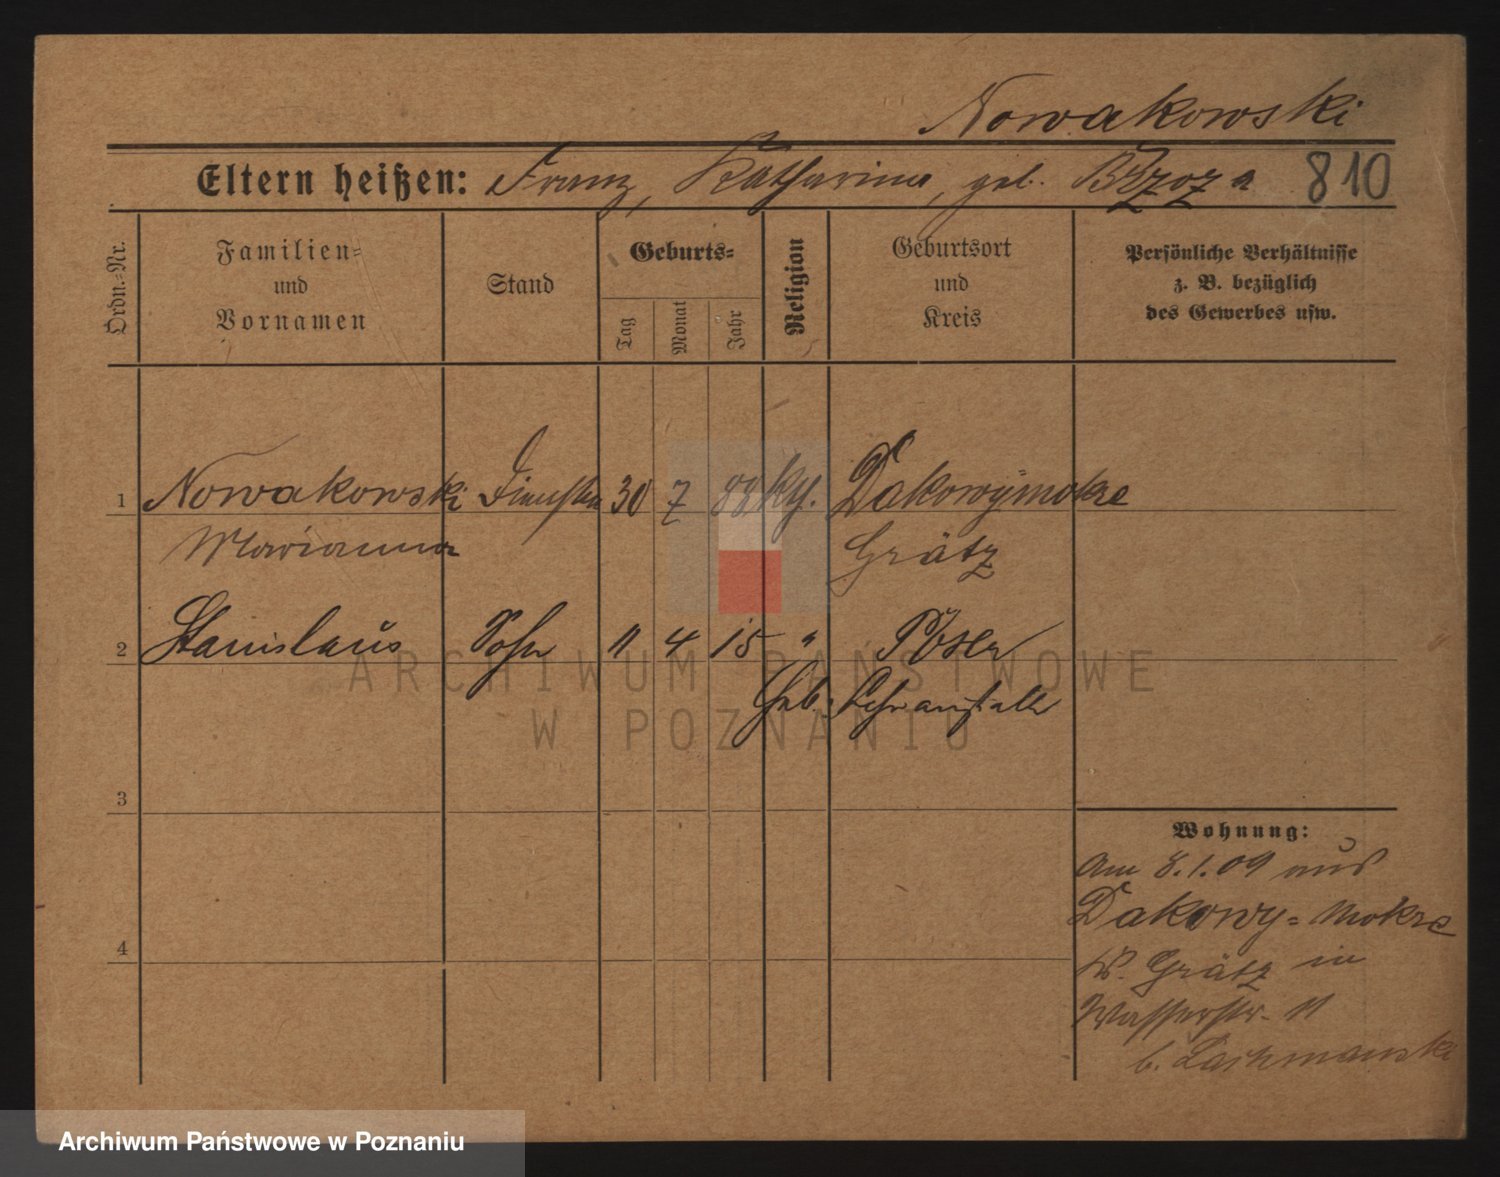 Nowakowski
Eltern heißen: Franz, Katharina, geb. Brzoza 810
Ordn.-Nr.
Familien- und Vornamen
Stand
Geburts-
Tag
Monat
Jahr
Religion
Geburtsort und Kreis
Persönliche Verhältnisse z. B. bezüglich des Gewerbes usw.
1 Nowakowski 30 7 88 kth. Dakowymokre
Marianna Grätz
2 Stanislaus Sohn 11 4 15 " Posen
Geb. Lehranstalt
3
4
Wohnung:
Am 8.1.09 aus
Dakowy=Mokre
Kr. Grätz in
Wasserstr. 11
b. Lachmanski
ARCHIWUM PAŃSTWOWE
W POZNANIU
Archiwum Państwowe w Poznaniu